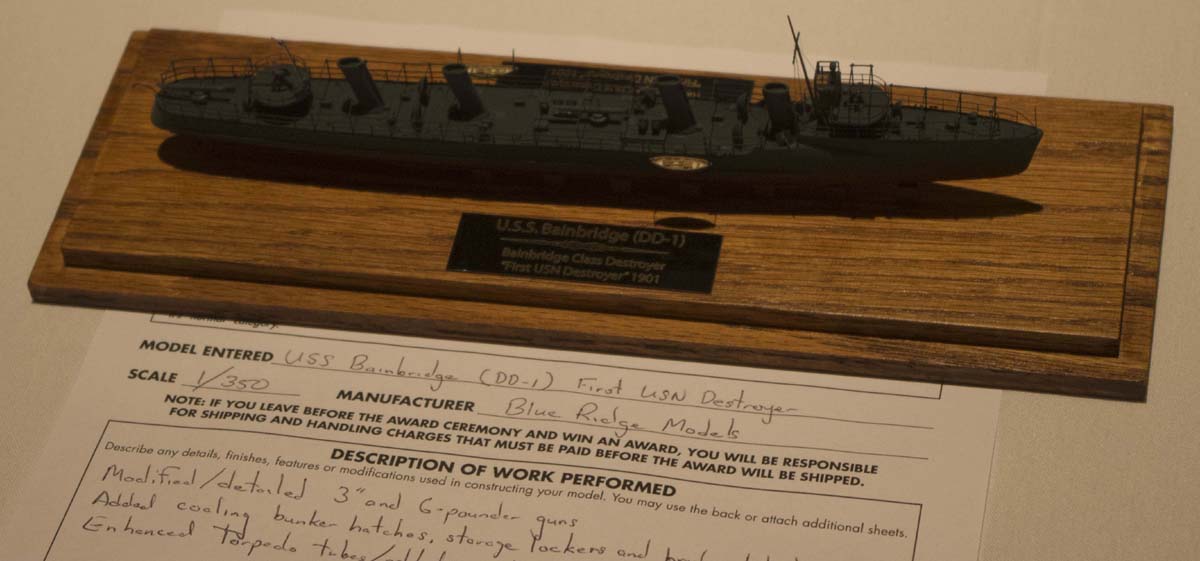 U.S.S. Bainbridge (DD-1)
Bainbridge Class Destroyer
"First USN Destroyer" 1901
MODEL ENTERED USS Bainbridge (DD-1) First USN Destroyer
SCALE 1/350
MANUFACTURER Blue Ridge Models
NOTE: IF YOU LEAVE BEFORE THE AWARD CEREMONY AND WIN AN AWARD, YOU WILL BE RESPONSIBLE
FOR SHIPPING AND HANDLING CHARGES THAT MUST BE PAID BEFORE THE AWARD WILL BE SHIPPED.
DESCRIPTION OF WORK PERFORMED
Describe any details, finishes, features or modifications used in constructing your model. You may use the back or attach additional sheets.
Modified/detailed 3" and 6-pounder guns
Added coaling bunker hatches, storage lockers and
Enhanced Torpedo tubes/